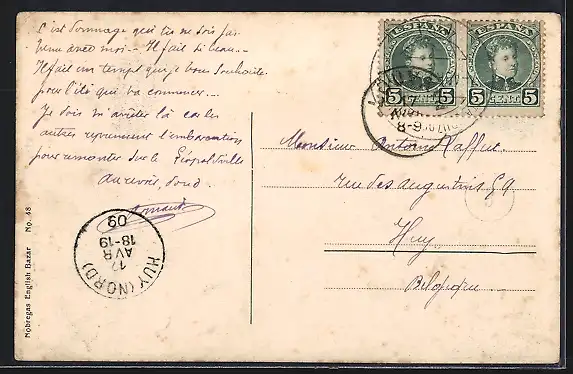 C'est dommage que tu ne sois pas
venu avec moi -- Il fait si beau --
Il fait un temps que je vous souhaite
pour l'été qui va commencer --
Je dois m'arrêter là car les
autres reprennent l'embarcation
pour remonter sur le Léopoldville
Au revoir, 
Armand
HUY (NORD)
12
AVR
18-19
09
Nobregas English Bazar No. 48
ESPAÑA
5 CENTS 5
ESPAÑA
5 CENTS 5
8-9
Monsieur Antoine
rue des augustins 9
Huy
Belgique